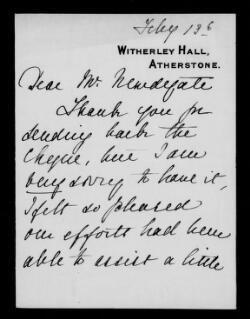 Feby 13th
WITHERLEY HALL,
ATHERSTONE.
Dear Mr Newdegate
Thank you for
sending back the
cheque, but I am
very sorry to have it,
I felt so pleased
our efforts had been
able to assist a little